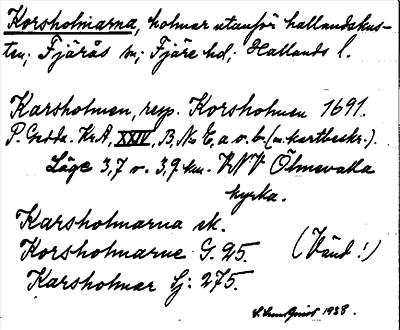 Korsholmarna, holmar utanför hallandskus-
ten; Fjärås sn; Fjäre hd; Hallands l.
Karsholmen, resp. Korsholmen 1691.
P. Gedda. KrA, XXIV, B, No E, a o. b. (m. kartbeskr.).
Läge 3,7 o. 3,9 km. VNV Ölmevalla
kyrka.
Karsholmarna ek.
Korsholmarne G. 25.
(Vänd!)
Karsholmar Lj: 275.
S. Lundquist 1938.